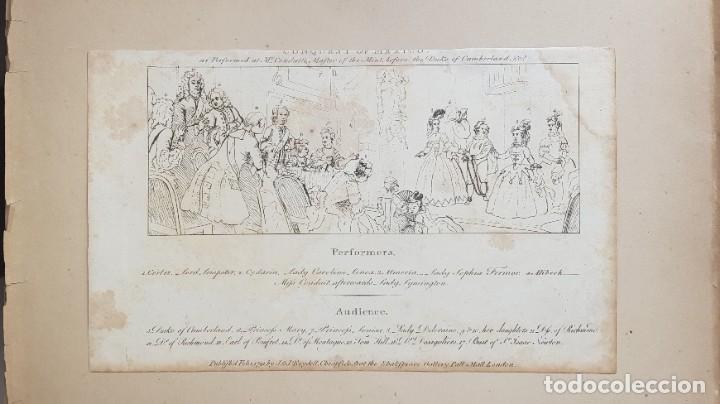 CONQUEST OF MEXICO.
as Performed at Mr. Conduit's, Master of the Mint, before the Duke of Cumberland, &c.
Performers.
1. Cortez. Lord Lempster, 2. Cydaria, Lady Caroline Lenox. 3. Almeria. Lady Sophia Fermor. 4. Alibech
Miss Conduit afterwards Lady Lymington.
Audience.
5. Duke of Cumberland. 6. Princess Mary, 7. Princess Louisa, 8. Lady Deloraine, 9 & 10. her daughters 11. Dss. of Richmond
12. Dk. of Richmond. 13. Earl of Pomfret. 14. Dk. of Montague. 15. Tom Hill. 16. Dr. Desaguliers. 17. Bust of Sr. Isaac Newton.
Published Feb. 1792 by J. & J. Boydell, Cheapside, & at the Shakspeare Gallery Pall Mall London.
todocoleccion
todocoleccion.net